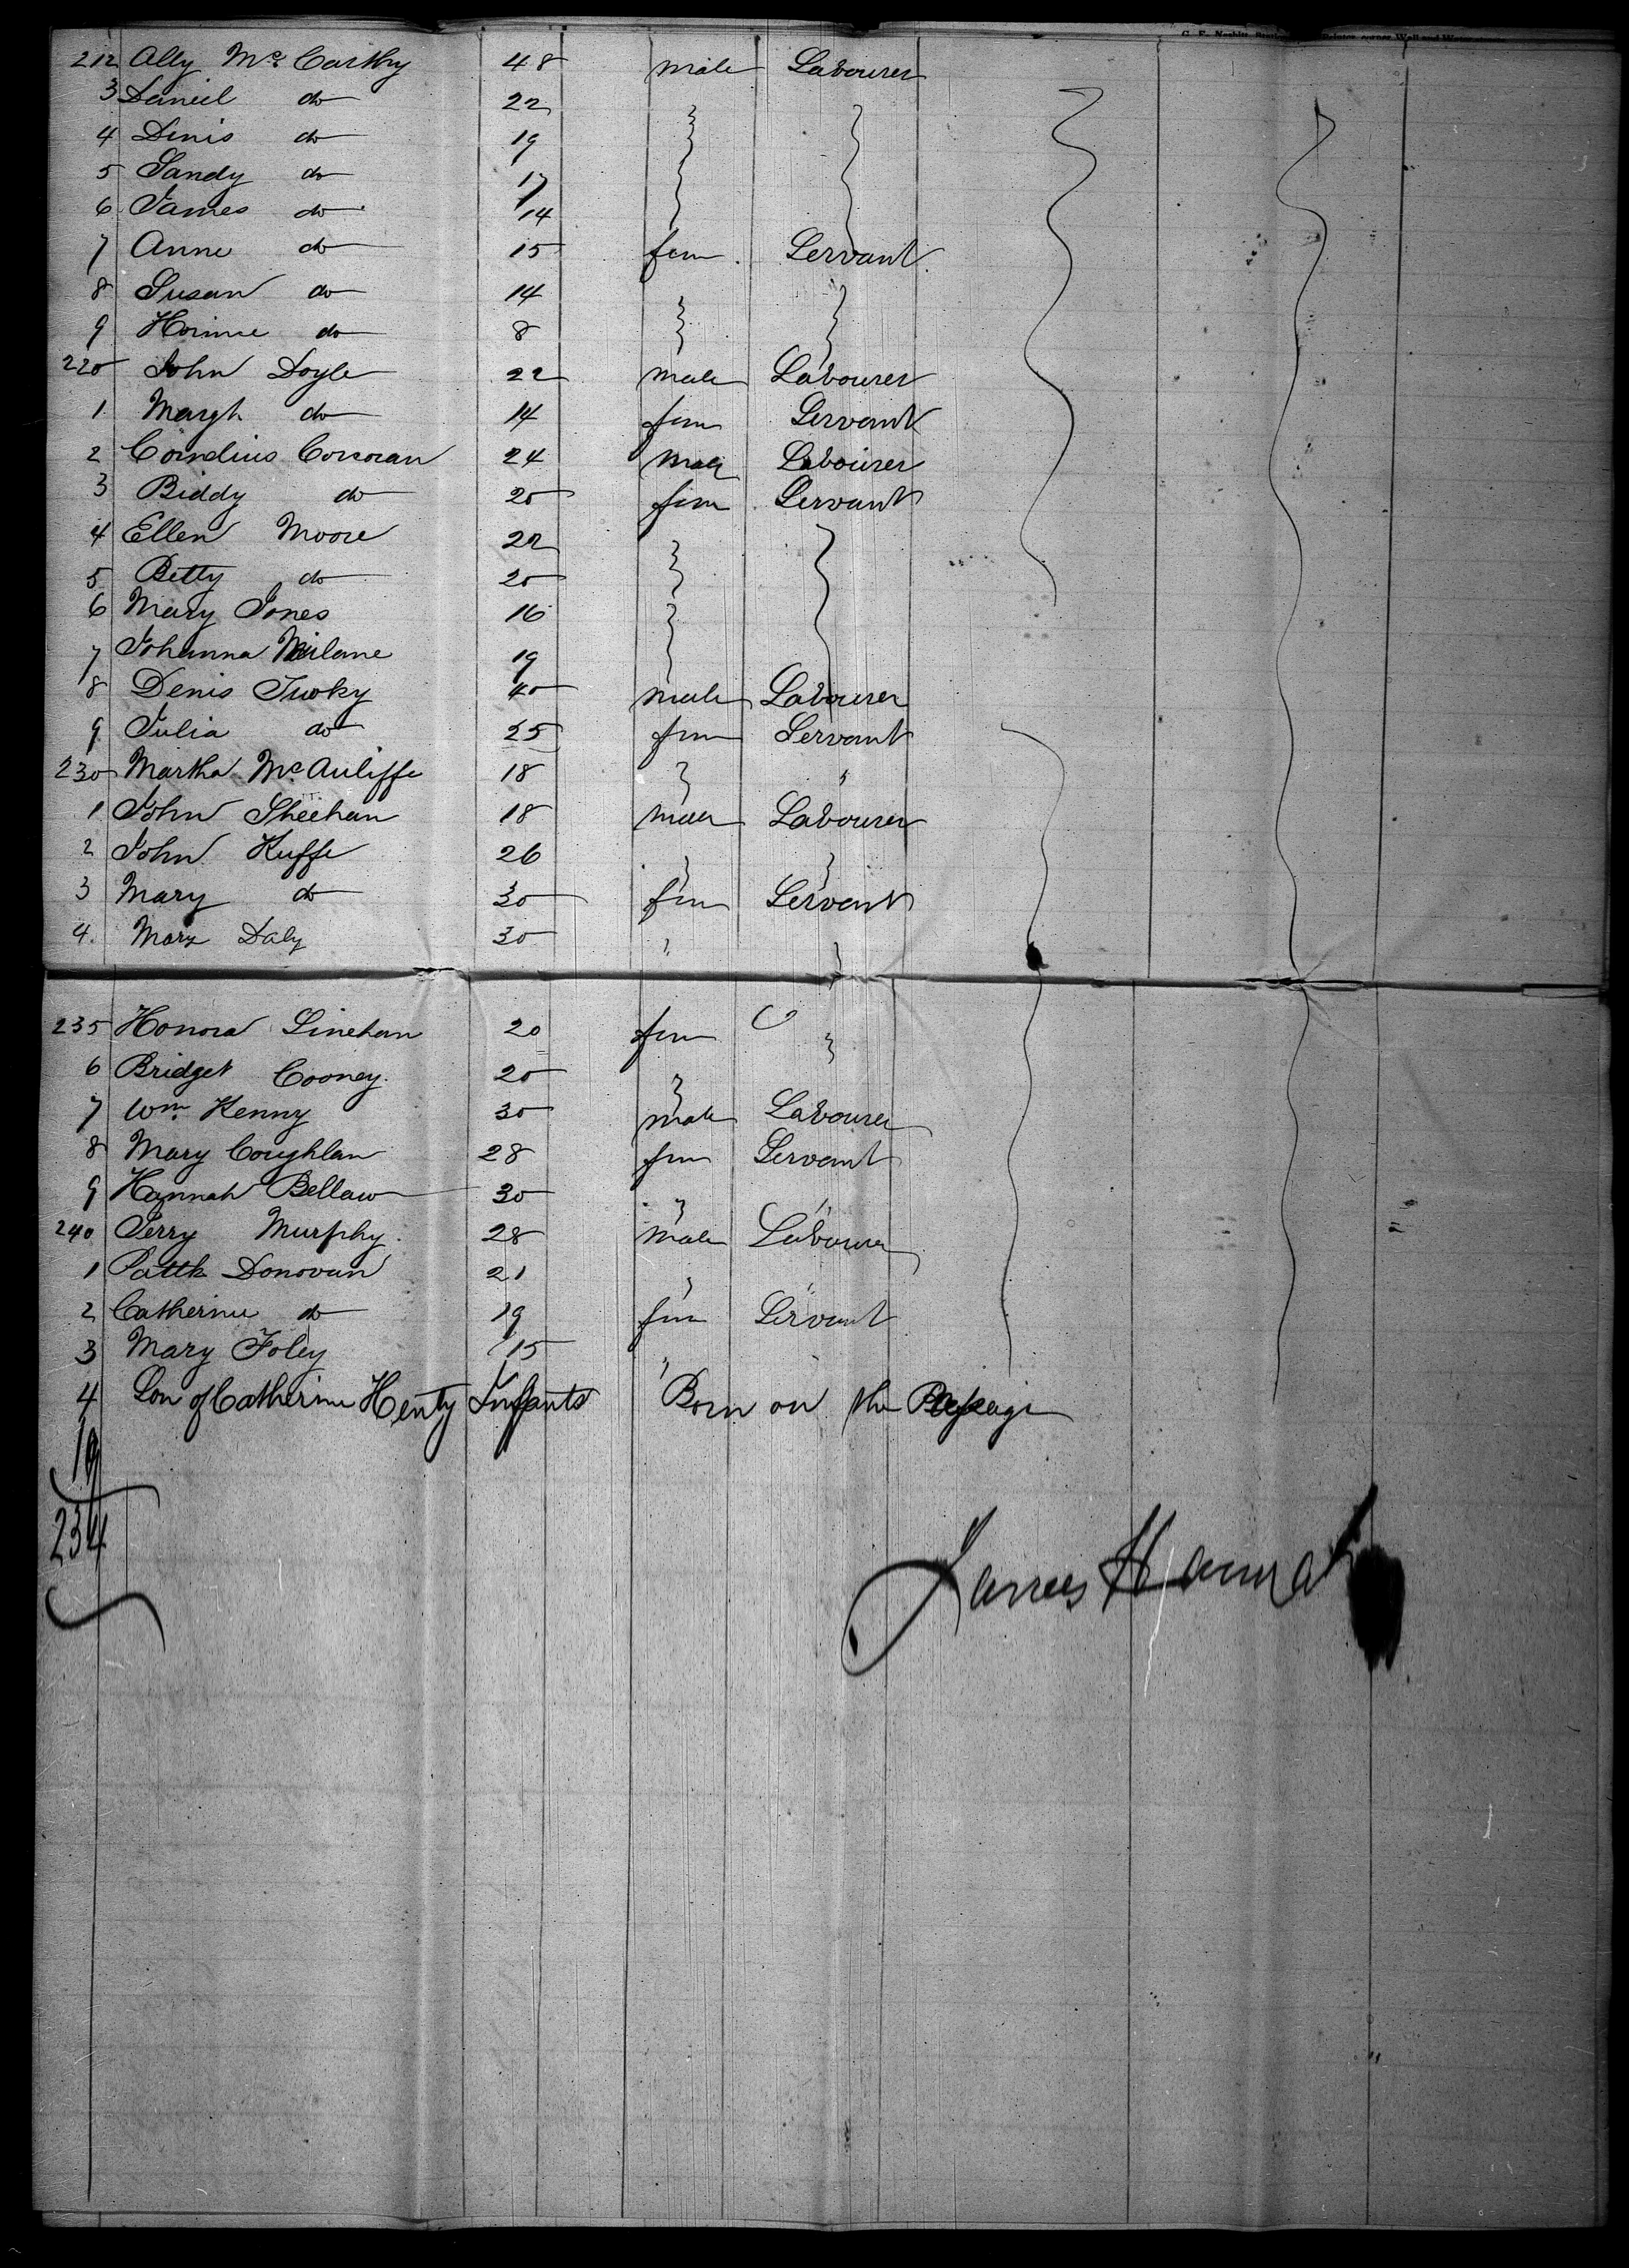 212 Ally Mc Carthy 48 male Labourer
3 Daniel do 22
4 Denis do 19
5 Sandy do 17
6 James do 14
7 Anne do 15 fem Servant
8 Susan do 14
9 do 8
220 John Doyle 22 male Labourer
1 Margt do 14 fem Servant
2 Cornelius Corcoran 24 male Labourer
3 Biddy do 20 fem Servant
4 Ellen Moore 22
5 Betty do 20
6 Mary Jones 16
7 Johanna 19
8 Denis Twoky 40 male Labourer
9 Julia do 25 fem Servant
230 Martha McAuliffe 18 "
1 John Sheehan 18 male Labourer
2 John Kuffe 26
3 Mary do 30 fem Servant
4 Mary Daly 30 "
235 Honora Linehan 20 fem
6 Bridget Cooney 20
7 Wm Kenny 30 male Labourer
8 Mary Coughlan 28 fem Servant
9 Hannah Bellaw 30 "
240 Jerry Murphy 28 male Labourer
1 Pattk Donovan 21 "
2 Catherine do 19 fem Servant
3 Mary Foley 15 "
4 Son of Catherine Henty Infants Born on the Passage
19
234
James Hannah